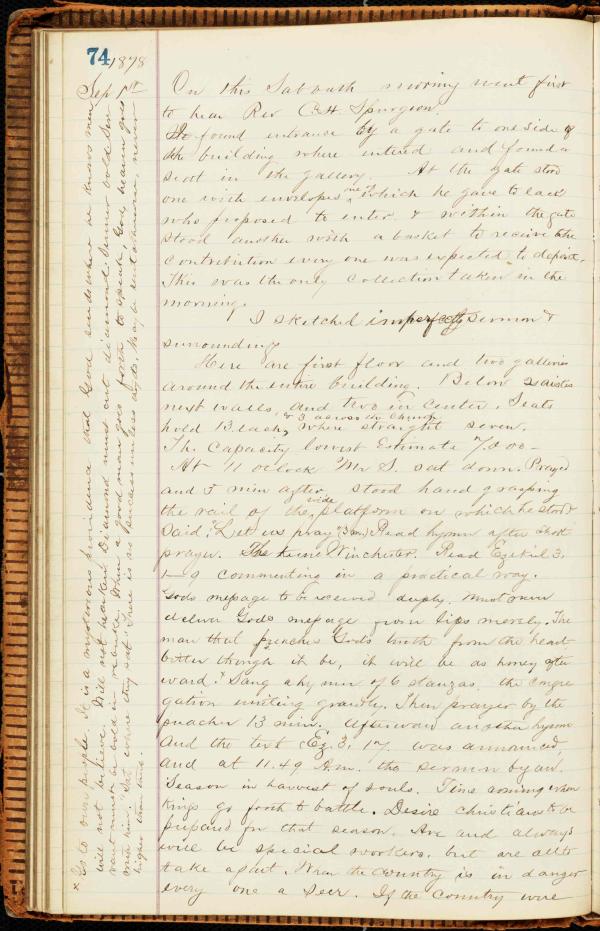 74
1878
Sep 1st
On this Sabbath morning went first
to hear Rev. C. H. Spurgeon.
We found entrance by a gate to one side of
the building where entered and found a
seat in the gallery. At the gate stood
one with envelopes one of which he gave to each
who proposed to enter & within the gate
stood another with a basket to receive the
contribution every one was expected to deposit.
This was the only collection taken in the
morning.
I sketched imperfectly sermon &
surroundings
Here are first floor and two galleries
around the entire building. Below aisles
next walls, and two in center. Seats
hold 13 each, & 3 across the church where straight seven.
The capacity lowest estimate 7.000 —
At 11 oclock Mr S. sat down. Prayed
and 3 min after stood hand grasping
the rail of the wide platform on which he stood &
said, "Let us pray" (3 m.) Read hymn after short
prayer. The tune Winchester. Read Ezekiel 3.
1—9 commenting in a practical way.
Gods message to be received deeply. Must never
deliver Gods message from lips merely. The
man that preaches Gods truth from the heart
bitter though it be, it will be as honey after
ward." Sang a hymn of 6 stanzas. the congre
gation uniting grandly. Then prayer by the
preacher 13 min. Afterward another hymn
and the text Ez. 3. 17. was announced,
and at 11.49 A.m. the sermon began.
Season in harvest of souls. Time coming when
kings go forth to battle. Desire christians to be
prepared for that season. Are and always
will be special workers. but are all to
take a part. When the country is in danger
every one a seer. If the country were
x Go to own people. It is a mysterious providence that God sends when he knows men
will not believe. Will not hearken. Diamond must cut diamond. Sinner bold Ser
vant must be bold in rebuke. When a good man goes forth to speak, God, heaven goes
with him. "Sat where they sat." There is no success in less doubt. may be sent to heaven, never
higher than this.